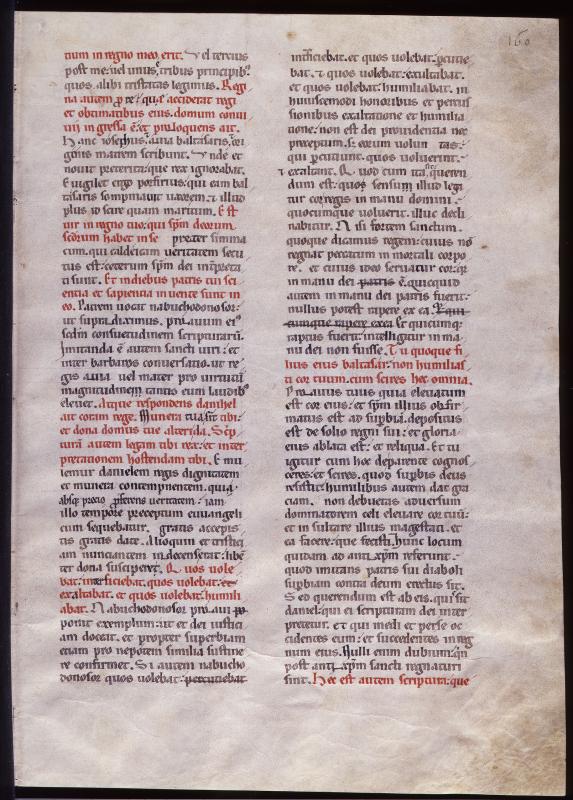 160
tium in regno meo erit. Vel tercius
post me: uel unus e tribus principib;
quos alibi tristatas legimus. Regi
na autem p re: que acciderat regi
et obtimatibus eius. domum conui
uii ingressa ē: et proloquens ait.
Hanc iosephus. auia baltasaris: ori
ginis matrem scribunt. Vnde et
nouit preterita: que rex ignorabat.
E uigilet ergo porfirius: qui eam bal
tasaris sompniauit uxorem: et illud
plus scire quam maritum. Est
uir in regno tuo: qui spm deorum
scōrum habet in se preter simma
cum. qui caldeicam ueritatem secu
tus est: ceterum spm dei intpreta
ti sunt. Et in diebus patris tui sci
entia et sapientia inuente sunt in
eo. Patrem uocat nabuchodonosor:
ut supra diximus. proauum ei'
scdm consuetudinem scripturarū.
Imitanda ē autem sancti uiri: et
inter barbaros conuersatio. ut re
gis auia uel mater pro uirtutū
magnitudinem tantio eum laudib;
eleuet. Atque respondens danihel
ait coram rege. Munera tua sint tibi:
et dona domus tue alteri da. Scrip
turā autem legam tibi rex: et inter
pretationem hostendam tibi. E mu
lemur danielem regis dignitatem
et munera contempnentem. qui a
absq; precio pferens ueritatem: iam
illo tempore preceptum euuangeli
cum sequebatur. gratis accepis
tis gratis date. Alioquin et tristici
am nunciantem indecens erat: libē
ter dona suscipere. Quos uole
bat: interficiebat. quos uolebat: et
exaltabat. et quos uolebat: humili
abat. Nabuchodonosor pro aui pro
ponit exemplum: ut et dei iustici
am doceat. et propter superbiam
etiam pro nepotem similia sustine
re confirmet. Si autem nabucho
donosor quos uolebat: percuciebat
intficiebat. et quos uolebat: pcucie
bat. et quos uolebat: exaltabat.
et quos uolebat: humiliabat. in
huiuscemodi honoribus et percus
sionibus exaltatione et humilia
tione: non est dei prouidentia nec
preceptum. s; eorum uolun tas:
qui pcutiunt. quos uoluerint.
et exaltant. Quod cum ita sit: queren
dum est: quos sensum illud legi
tur cor regis in manu domini.
quocumque uoluerit. illuc decli
nabitur. Nisi forte sanctum.
quoque dicamus regem: cuius nō
regnat peccatum in mortali corpo
re. et cuius ideo seruatur cor: qr
in manu dei patris ē. quicquid
autem in manu dei patris fuerit:
nullus potest rapere ex ea. Et qui
cumque rapere ex ea et quicumq;
raptus fuerit: intelligitur in ma
nu dei non fuisse. Tu quoque fi
lius eius baltasar: non humilias
ti cor tuum. cum scires hec omnia.
Proauus tuus quia eleuatum
est cor eius: et spm illius obfir
matus est ad supbiā. depositus
est de solio regni sui: et gloria
eius ablata est: et reliqua. Et tu
igitur cum hoc de parente cognos
ceres: et scires. quod supbis deus
resistit: humilibus autem dat gra
ciam. non debueras aduersum
dominatorem celi eleuare cor tuū:
et insultare illius magestati. et
ea facere: que fecisti. hunc locum
quidam ad anti xpm referunt.
quod imitans patris sui diaboli
supbiam contra deum erectus sit.
Sed querendum est ab eis. qui sit
daniel: qui ei scripturam dei inter
pretetur. et qui medi et perse oc
cidentes eum: et succedentes in reg
num eius. Nulli enim dubium: qn
post anti xpm sancti regnaturi
sint. Hec est autem scriptura: que